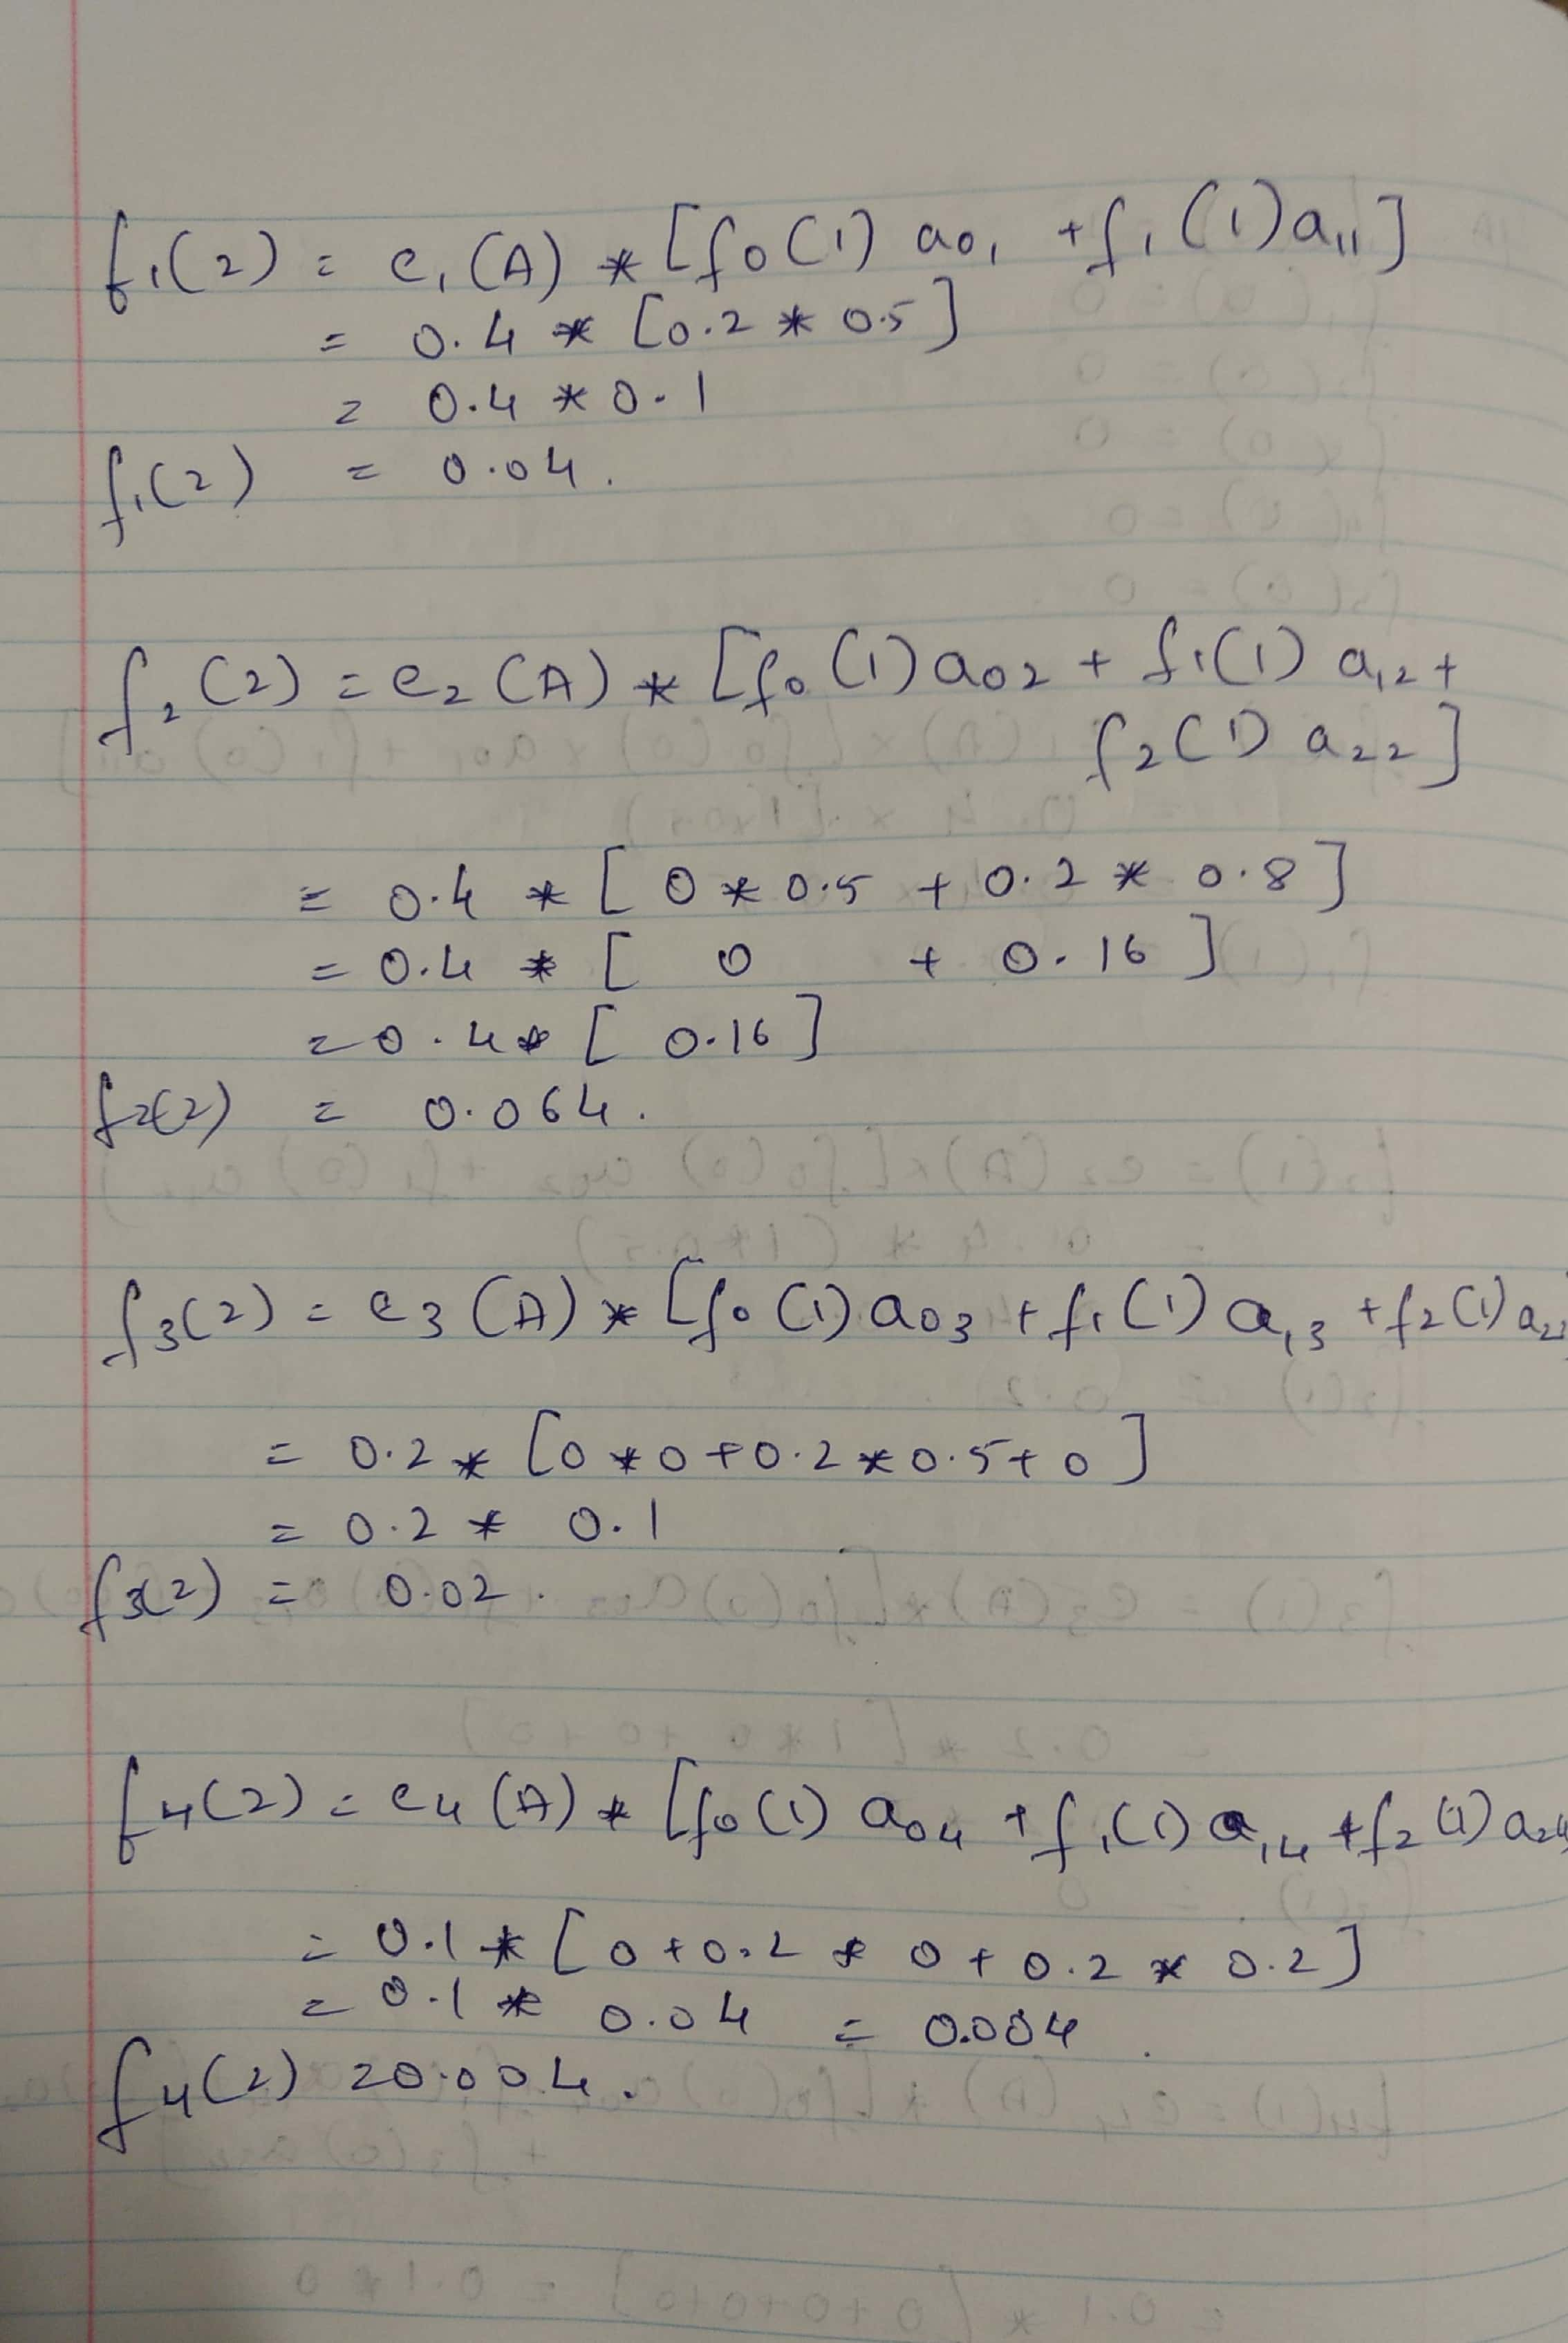 f₁(2) = e₁(A) * [f₀(1) a₀₁ + f₁(1) a₁₁]
= 0.4 * [0.2 * 0.5]
= 0.4 * 0.1
f₁(2) = 0.04.
f₂(2) = e₂(A) * [f₀(1) a₀₂ + f₁(1) a₁₂ +
f₂(1) a₂₂]
= 0.4 * [0 * 0.5 + 0.2 * 0.8]
= 0.4 * [ 0 + 0.16 ]
= 0.4 * [ 0.16 ]
f₂(2) = 0.064.
f₃(2) = e₃(A) * [f₀(1) a₀₃ + f₁(1) a₁₃ + f₂(1)
= 0.2 * [0 * 0 + 0.2 * 0.5 + 0]
= 0.2 * 0.1
f₃(2) = 0.02.
f₄(2) = e₄(A) * [f₀(1) a₀₄ + f₁(1) a₁₄ + f₂(1) a₂₄
= 0.1 * [0 + 0.2 * 0 + 0.2 * 0.2]
= 0.1 * 0.04 = 0.004.
f₄(2) = 0.004.